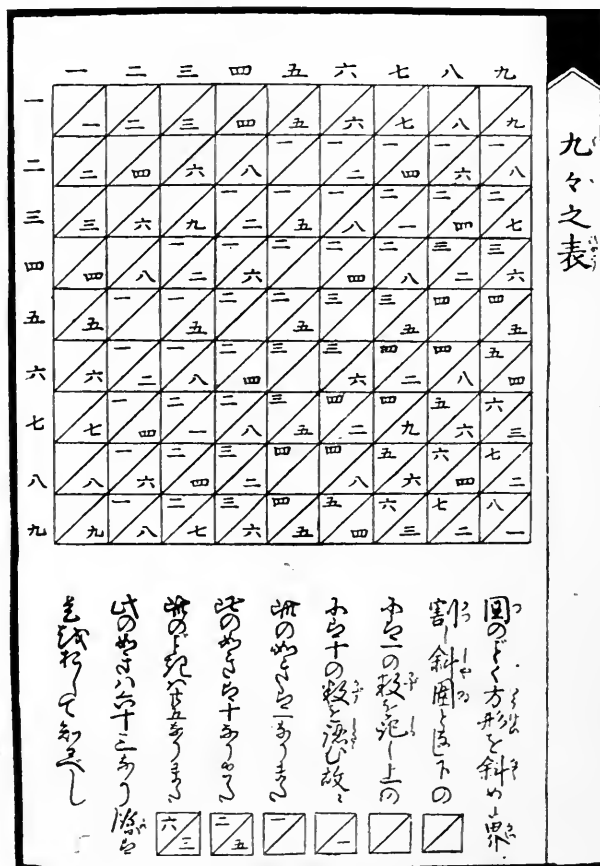 九々之表
一 二 三 四 五 六 七 八 九
一 一 二 三 四 五 六 七 八 九
二 二 四 六 八 一 一二 一四 一六 一八
三 三 六 九 一二 一五 一八 二一 二四 二七
四 四 八 一二 一六 二 二四 二八 三二 三六
五 五 一 一五 二 二五 三 三五 四 四五
六 六 一二 一八 二四 三 三六 四二 四八 五四
七 七 一四 二一 二八 三五 四二 四九 五六 六三
八 八 一六 二四 三二 四 四八 五六 六四 七二
九 九 一八 二七 三六 四五 五四 六三 七二 八一
圖のごとく方形を斜めに界
割し斜 下の
一の数を記し上の
十の数を認む故に
一
此の如きは一なりまた
一
此の如きは十なり
二五
此のごときは廿五なりまた
六三
此の如きは六十三なり餘は
是を推して知べし